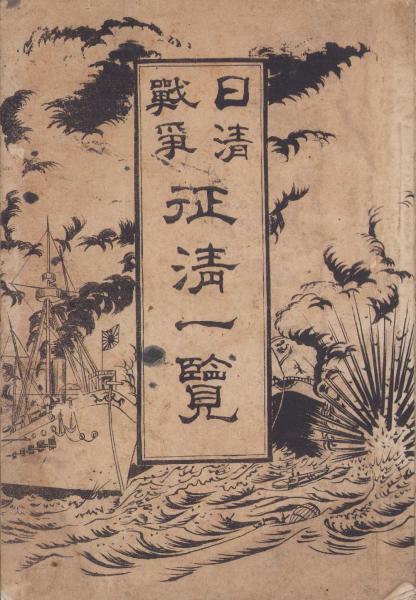 日清
戰爭
征清一覽